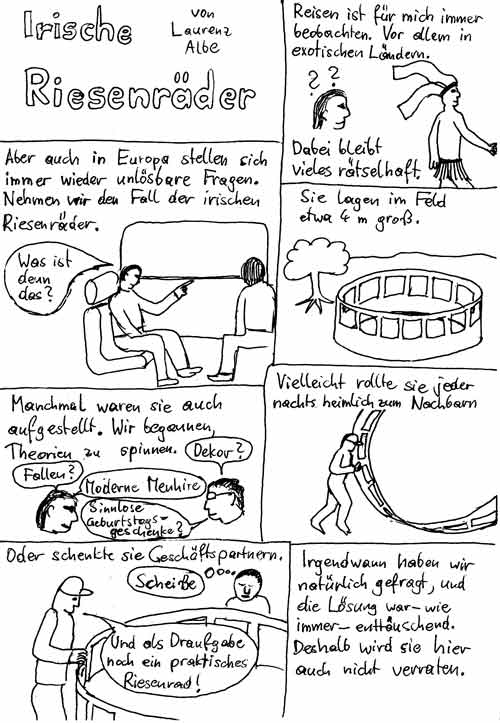 Irische
Riesenräder
von
Laurenz
Albe
Reisen ist für mich immer
beobachten. Vor allem in
exotischen Ländern.
? ?
Dabei bleibt
vieles rätselhaft.
Aber auch in Europa stellen sich
immer wieder unlösbare Fragen.
Nehmen wir den Fall der irischen
Riesenräder.
Was ist
denn
das?
Sie lagen im Feld
etwa 4 m groß.
Manchmal waren sie auch
aufgestellt. Wir begannen,
Theorien zu spinnen.
Dekor?
Fallen?
Moderne Menhire
Sinnlose
Geburtstags-
geschenke?
Vielleicht rollte sie jeder
nachts heimlich zum Nachbarn
Oder schenkte sie Geschäftspartnern.
Scheiße
Und als Draufgabe
noch ein praktisches
Riesenrad!
Irgendwann haben wir
natürlich gefragt, und
die Lösung war – wie
immer – enttäuschend.
Deshalb wird sie hier
auch nicht verraten.